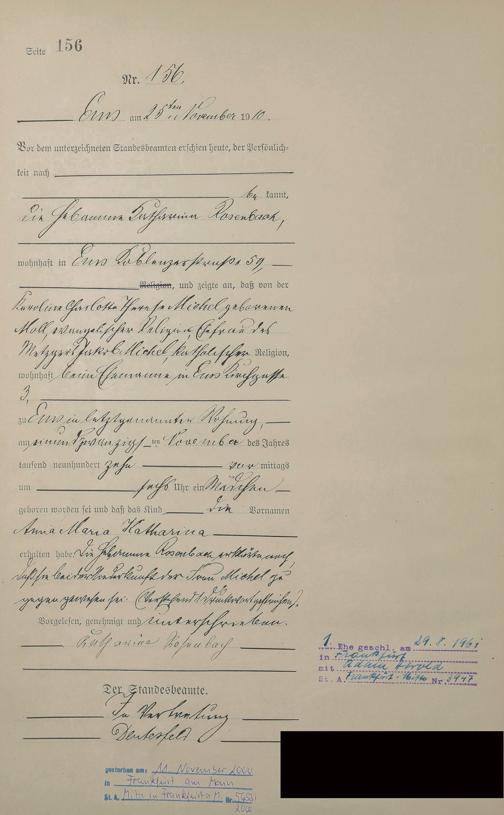 Seite 156
Nr. 156.
Ems am 25ten November 1910.
Vor dem unterzeichneten Standesbeamten erschien heute, der Persönlich-
keit nach
be kannt,
die Hebamme Katharina Rosenbach,
wohnhaft in Ems Koblenzerstraße 59,
Religion, und zeigte an, daß von der
Karoline Charlotte Therese Michel geborenen
Moll evangelischer Religion, Ehefrau des
Metzgers Jakob Michel katholischer Religion,
wohnhaft beim Ehemanne in Ems Kirchgasse
3,
zu Ems in letztgenannter Wohnung,
am einundzwanzigsten November des Jahres
tausend neunhundert zehn vor mittags
um sechs Uhr ein Mädchen
geboren worden sei und daß das Kind die Vornamen
Anna Maria Katharina
erhalten habe. Die Hebamme Rosenbach erklärte noch,
daß sie bei der Niederkunft der Frau Michel zu
gegen gewesen sei.
Vorgelesen, genehmigt und unterschrieben.
Katharina Rosenbach
Der Standesbeamte.
In Vertretung
1. Ehe geschl. am 29.8.1961
in Frankfurt
mit Adam
St. A. Frankfurt-Mitte Nr.
gestorben am: 11. November 2000
in Frankfurt am Main
St. A. Mitte in Frankfurt a. M. Nr.
2000